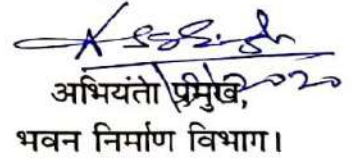 अभियंता प्रमुख,
भवन निर्माण विभाग।